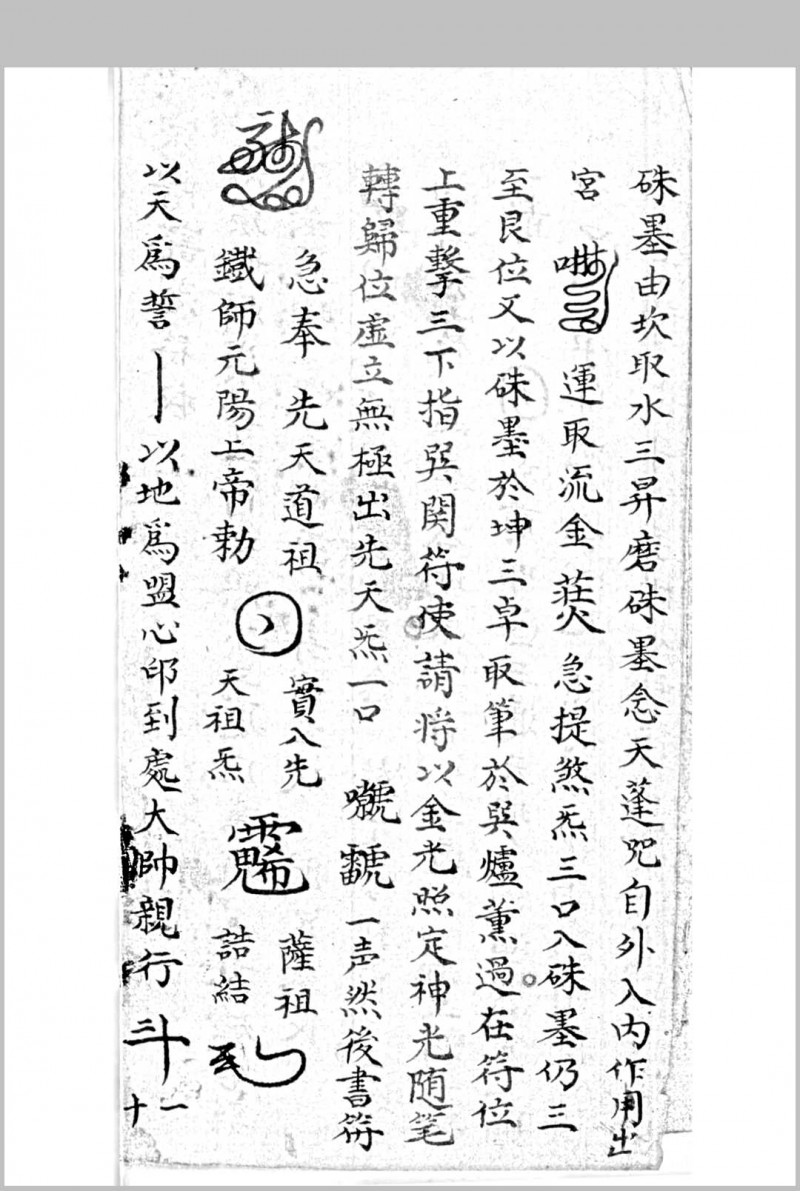 硃墨由坎取水三昇磨硃墨念天蓬咒自外入內作用出
宮 運取流金 急提煞炁三口入硃墨仍三
至艮位又以硃墨於坤三卓取筆於巽爐薰過在符位
上重擊三下指巽関符使請將以金光照定神光随笔
轉歸位虚立無極出先天炁一口 一声然後書符
急奉先天道祖 實入先 薩祖
鐵師元陽上帝勅 天祖炁 詰結
以天爲誓 以地爲盟心印到處大帥親行
十一